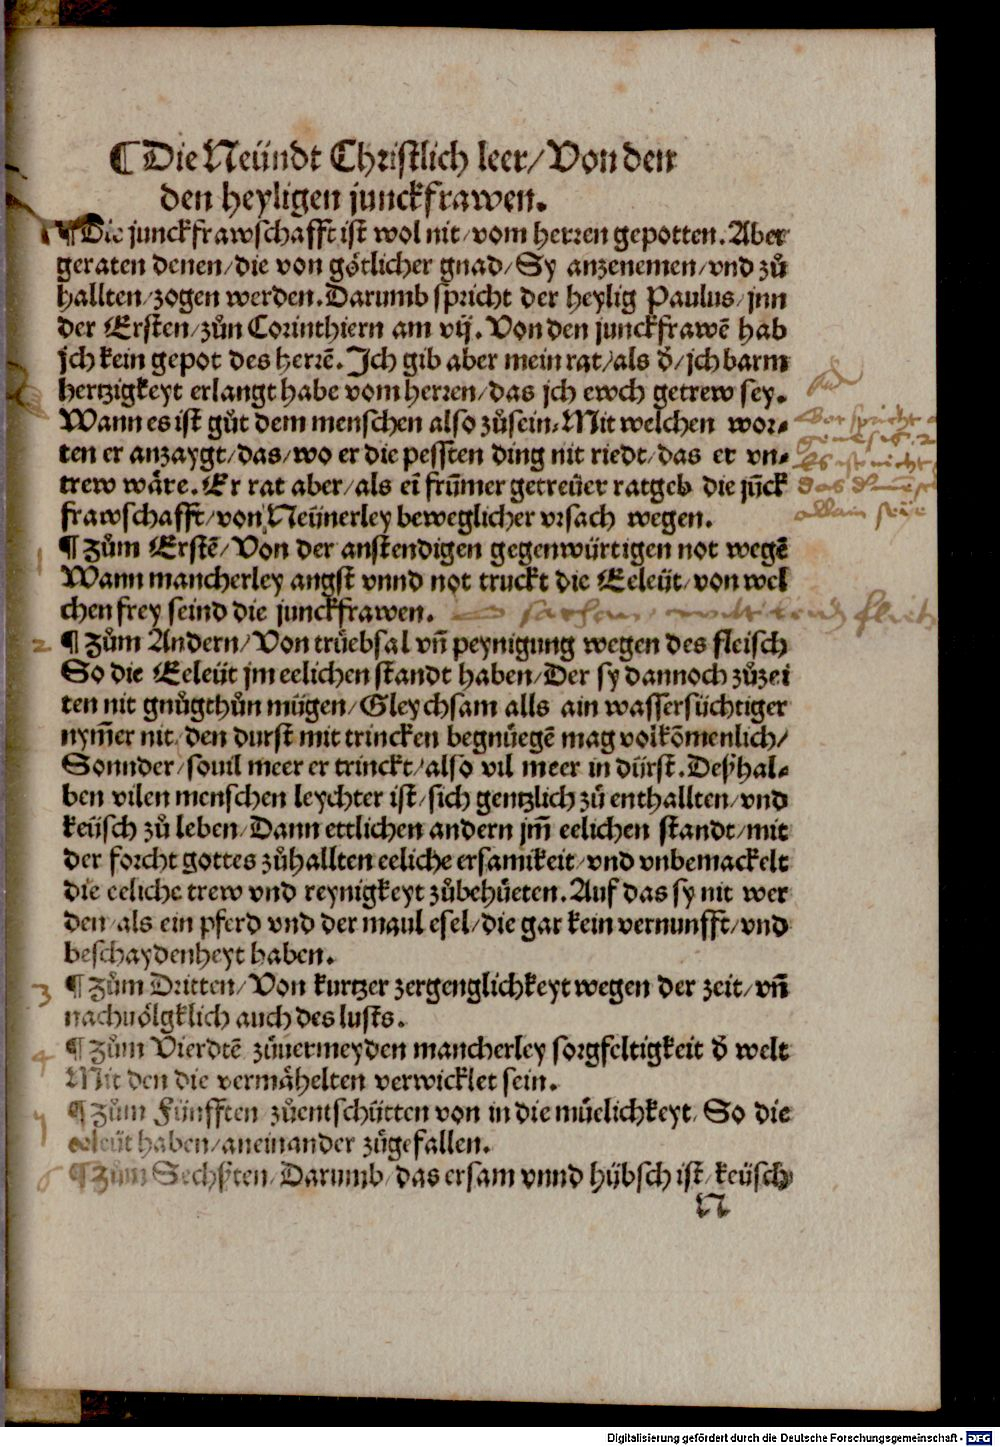 ¶ Die Neündt Christlich leer/ Von den
den heyligen junckfrawen.
¶ Die junckfrawschafft ist wol nit/ vom herren gepotten. Aber
geraten denen/ die von götlicher gnad/ Sy anzenemen/ vnd zů
hallten/ zogen werden. Darumb spricht der heylig Paulus/ jnn
der Ersten/ zůn Corinthiern am vij. Von den junckfrawē hab
jch kein gepot des herrē. Ich gib aber mein rat/ als ð/ jch barm
hertzigkeyt erlangt habe vom herren/ das jch ewch getrew sey.
Wann es ist gůt dem menschen also zůsein. Mit welchen wor⸗
ten er anzaygt/ das/ wo er die pessten ding nit riedt/ das er vn⸗
trew wäre. Er rat aber/ als eī frūmer getreüer ratgeb die jūck
frawschafft/ von Neünerley beweglicher vrsach wegen.
1 ¶ Zům Erstē/ Von der anstendigen gegenwürtigen not wegē
Wann mancherley angst vnnd not truckt die Eeleüt/ von wel
chen frey seind die junckfrawen.
2 ¶ Zům Andern/ Von trůebsal vn̄ peynigung wegen des fleisch
So die Eeleüt jm eelichen standt haben/ Der sy dannoch zůzei
ten nit gnůgthůn mügen/ Gleychsam alls ain wassersüchtiger
nym̄er nit/ den durst mit trincken begnůegē mag volkōmenlich/
Sonnder/ souil meer er trinckt/ also vil meer in dürst. Deßhal⸗
ben vilen menschen leychter ist/ sich gentzlich zů enthallten/ vnd
keüsch zů leben/ Dann ettlichen andern jm̄ eelichen standt/ mit
der forcht gottes zůhallten eeliche ersamikeit/ vnd vnbemackelt
die eeliche trew vnd reynigkeyt zůbehüeten. Auf das sy nit wer
den/ als ein pferd vnd der maul esel/ die gar kein vernunfft/ vnd
beschaydenheyt haben.
3 ¶ Zům Dritten/ Von kurtzer zergenglichkeyt wegen der zeit/ vn̄
nachuölgklich auch des lusts.
4 ¶ Zům Vierdtē zůuermeyden mancherley sorgfeltigkeit ð welt
Mit den die vermähelten verwicklet sein.
¶ Zům Fünfften zůentschütten von in die můelichkeyt/ So die
eeleüt haben/ aneinander zůgefallen.
6 ¶ Zům Sechßten/ Darumb/ das ersam vnnd hübsch ist/ keüsch
N
Gott spricht
Es ist nicht
das
allain seye
Digitalisierung gefördert durch die Deutsche Forschungsgemeinschaft - DFG